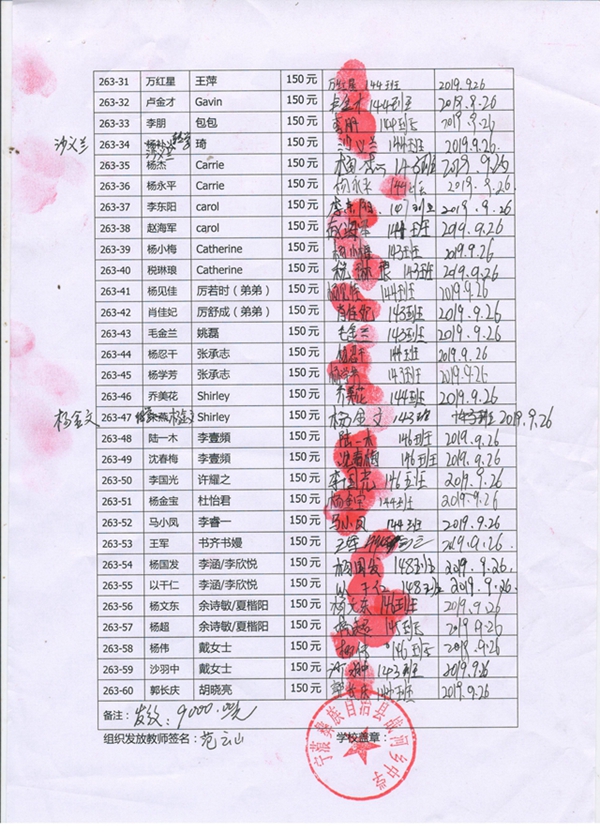 263-31 万红星 王萍 150元 万红星 144班 2019.9.26
263-32 卢金才 Gavin 150元 卢金才 144班 2019.9.26
263-33 李朋 包包 150元 李朋 144班 2019.9.26
沙义兰 263-34 琦 150元 沙义兰 144班 2019.9.26
263-35 杨杰 Carrie 150元 杨杰 143班 2019.9.26
263-36 杨永平 Carrie 150元 144班 2019.9.26
263-37 李东阳 carol 150元 李东阳 班 2019.9.26
263-38 赵海军 carol 150元 赵海军 144班 2019.9.26
263-39 杨小梅 Catherine 150元 杨小梅 143班 2019.9.26
263-40 税琳琅 Catherine 150元 琳琅 143班 2019.9.26
263-41 杨见佳 厉若时（弟弟） 150元 杨见佳 144班 2019.9.26
263-42 肖佳妃 厉舒成（弟弟） 150元 肖佳妃 143班 2019.9.26
263-43 毛金兰 姚磊 150元 毛金兰 143班 2019.9.26
263-44 杨忍干 张承志 150元 杨忍干 144班 2019.9.26
263-45 杨学芳 张承志 150元 杨学芳 143班 2019.9.26
263-46 乔美花 Shirley 150元 乔美花 144班 2019.9.26
杨金文 263-47 杨金文 Shirley 150元 杨金文 143班 2019.9.26
263-48 陆一木 李壹頻 150元 陆一木 146班 2019.9.26
263-49 沈春梅 李壹頻 150元 沈春梅 146班 2019.9.26
263-50 李国光 许耀之 150元 李国光 146班 2019.9.26
263-51 杨金宝 杜怡君 150元 杨金宝 144班 2019.9.26
263-52 马小凤 李睿一 150元 马小凤 144班 2019.9.26
263-53 王军 书齐书嫚 150元 王军
263-54 杨国发 李涵/李欣悦 150元 杨国发 148班 2019.9.26
263-55 以干仁 李涵/李欣悦 150元 以干仁 148班 2019.9.26
263-56 杨文东 余诗敏/夏楷阳 150元 杨文东 146班 2019.9.26
263-57 杨超 余诗敏/夏楷阳 150元 杨超 班 2019.9.26
263-58 杨伟 戴女士 150元 杨伟 146班 2019.9.26
263-59 沙羽中 戴女士 150元 143班 2019.9.26
263-60 郭长庆 胡晓亮 150元 郭长庆 班 2019.9.26
备注： 发放：9000.00元
组织发放教师签名： 范云山 学校盖章：
宁蒗彝族自治县 河乡中学